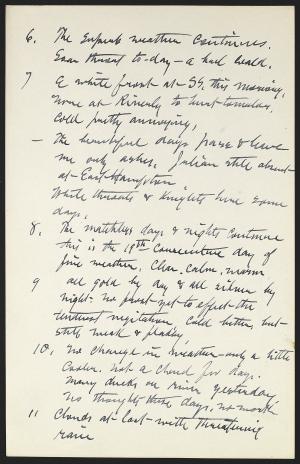 6. The superb weather continues.
Sore throat to-day - a hard cold.
7 A white frost at S.S. this morning,
None at Riverby to hurt tomatoes,
Cold pretty annoying,
- The beautiful days pass & leave
me only ashes. Julian still absent
at East Hampton
White throats & Kinglets here some
days.
8. The matchless days & nights continue
this is the 18th consecutive day of
fine weather. Clear, calm, warm,
9 all gold by day & all silver by
night. No frost yet to affect the
tenderest vegetation Cold better, but
still weak &
10, No change in weather - only a little
cooler. Not a cloud for days.
Many ducks on river yesterday
No thoughts these days, no work
11 Clouds at last - with threatening
rain